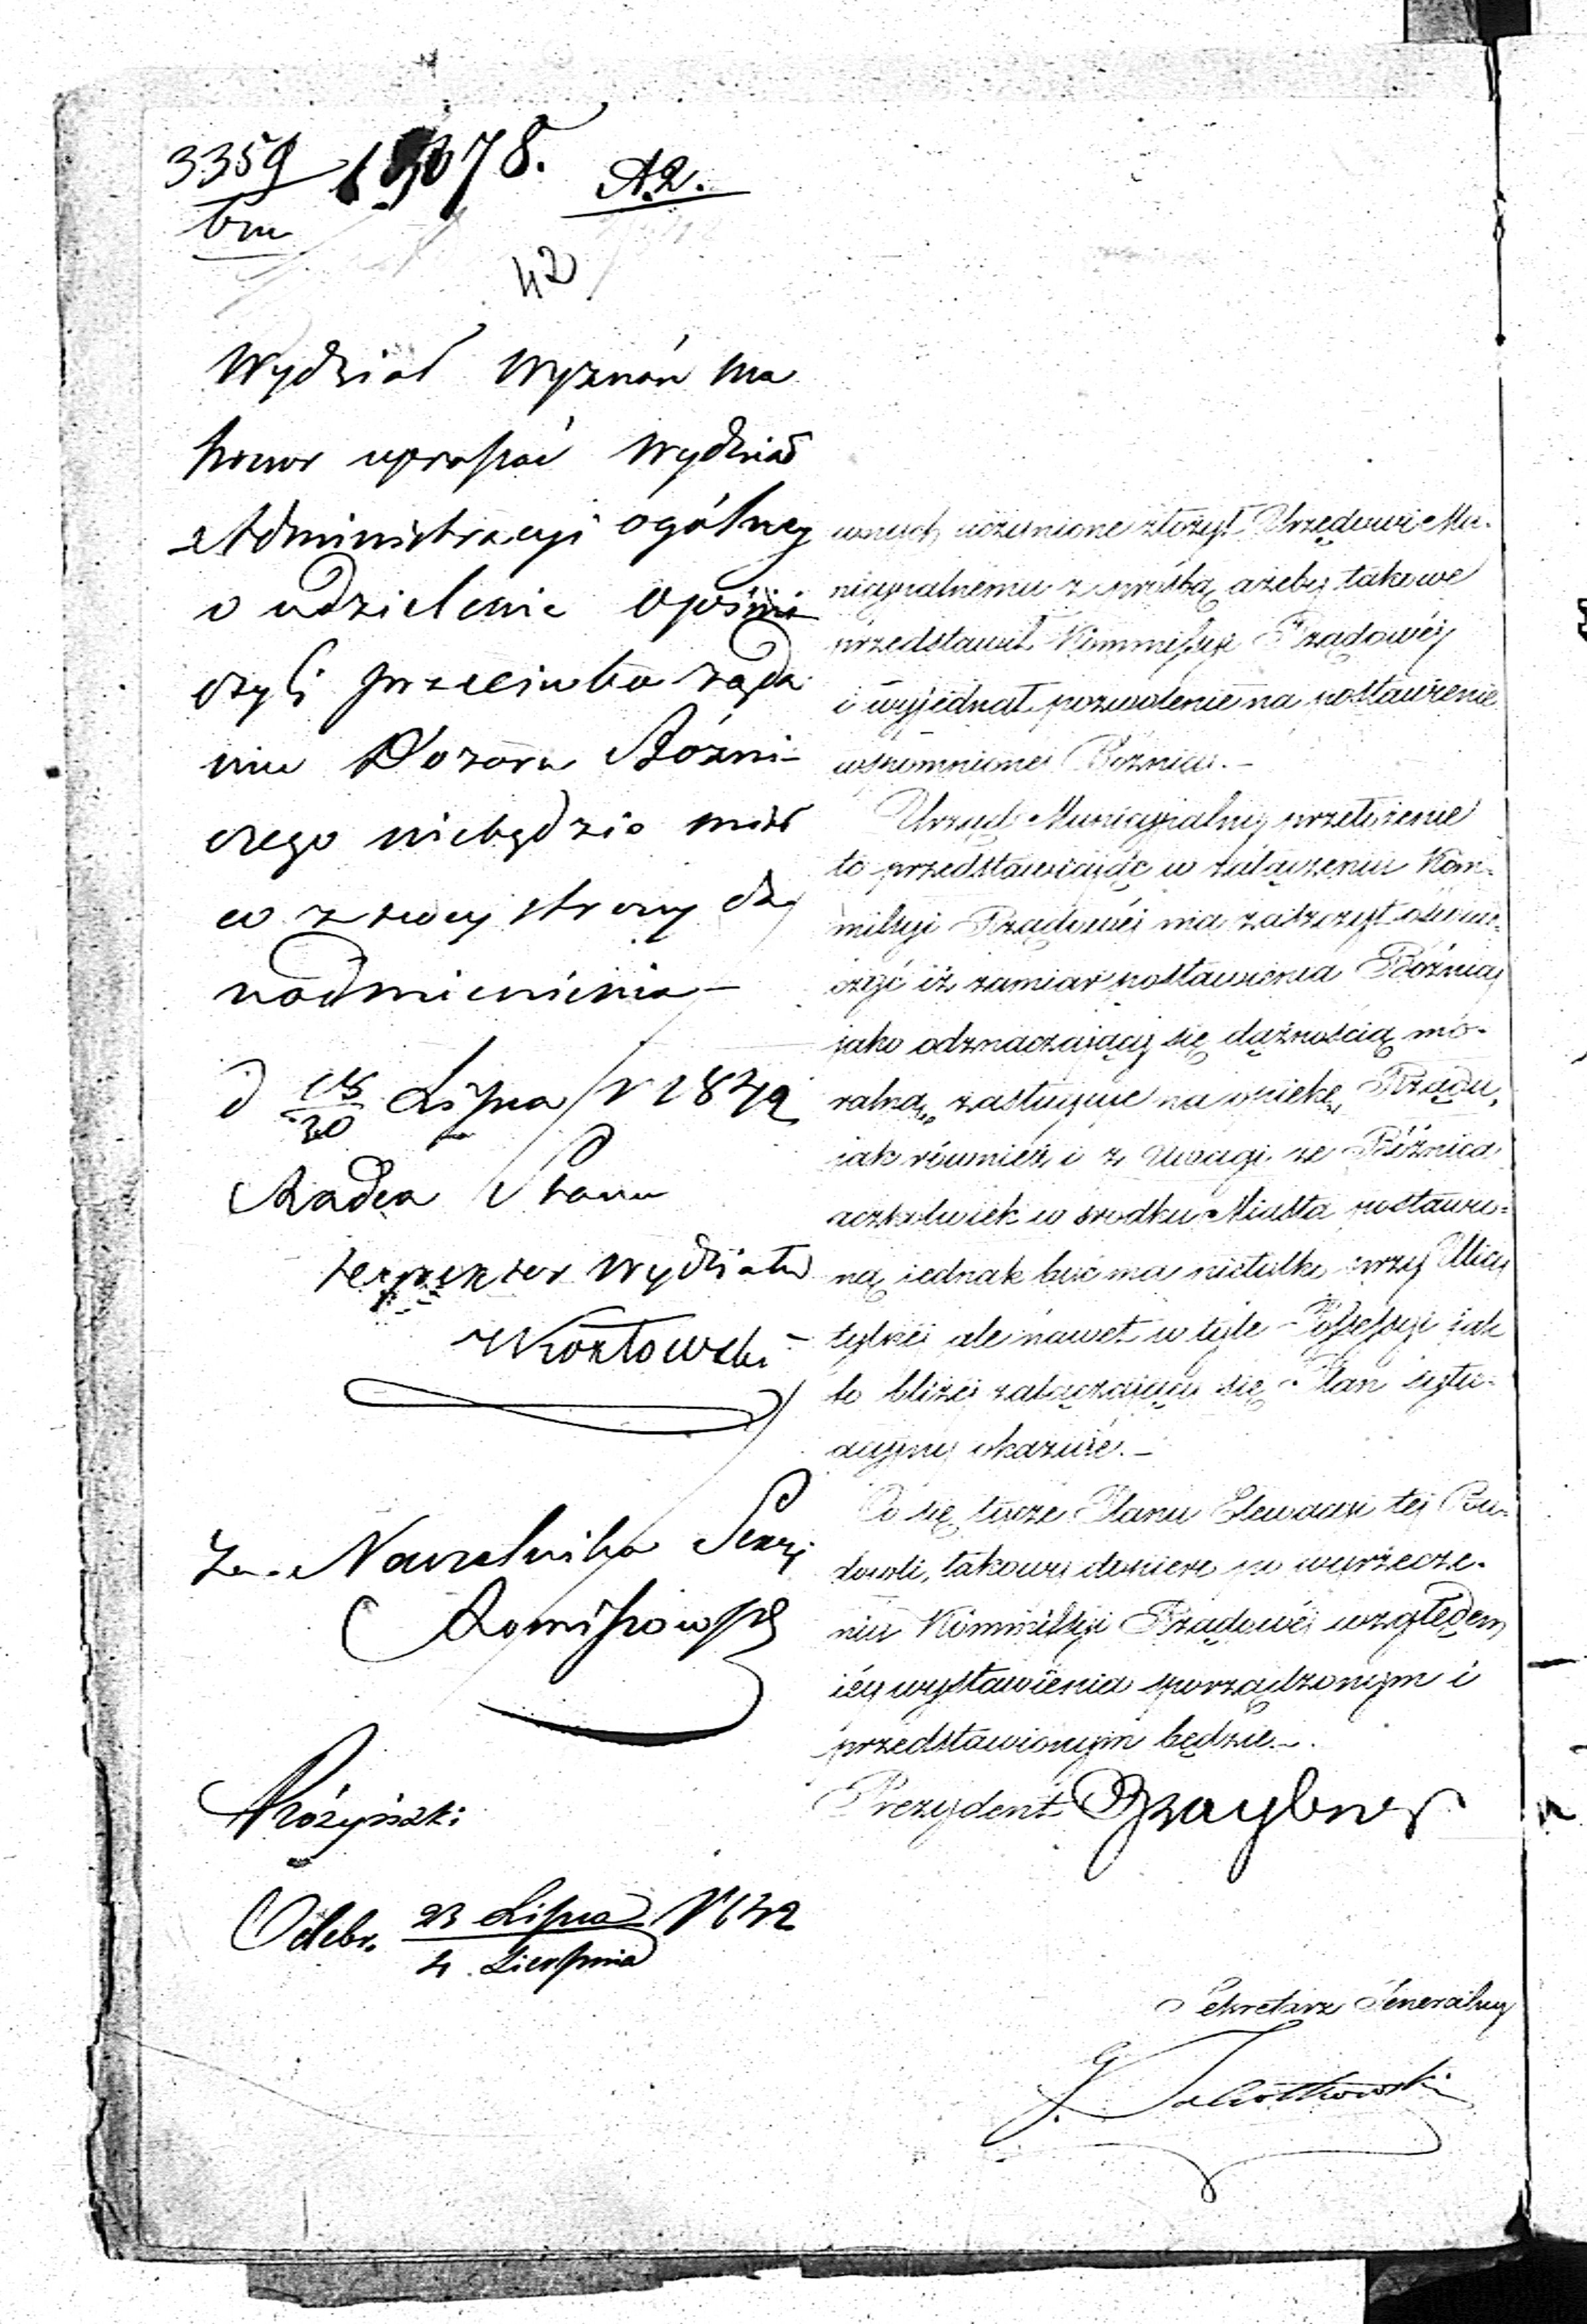 3359
bm
18078.
A2.
42
Wydział Wyznań ma
honor upraszać Wydział
Administracyi ogólney
o udzielenie opinii
czyli przeciwko żąda
niu Dozoru Bóżni-
czego niebędzie miał
co z swey strony do
nadmienienia –
d 18/30 Lipca r 1842
Radca Stanu
Dyrektor Wydziału
Kozłowski
Za. Naczelnika Sekcyi
Różyński
Odebr. 23 Lipca / 4. Sierpnia 1842
uczynione złożył Urzędowi Mu-
nicypalnemu z prośbą, ażeby takowe
przedstawił Kommissyi Rządowéy
i wyjednał pozwolenie na postawienie
wspomnioney Bóżnicy. –
Urząd Municypalny przełożenie
to przedstawiając w załączeniu Kom-
missyi Rządowéy ma zaszczyt oświad-
czyć iż zamiar postawienia Bóżnicy
jako odznaczający się dążnością mo-
ralną, zasługuje na opiekę Rządu,
jak również i z uwagi że Bóżnica
aczkolwiek w środku Miasta postawio-
ną jednak być ma nietylko przy Ulicy
tylnéy ale nawet w tyle Possessyi jak
to bliżéy załączający się Plan sytu-
acyjny okazuie. –
Co się tycze Planu Elewacyi téy Bu-
dowli, takowy dopiero po wyrzecze-
niu Kommissyi Rządowéy względem
iéy wystawienia sporządzonym i
przedstawionym będzie. –
Prezydent Graybner
Sekretarz Generalny